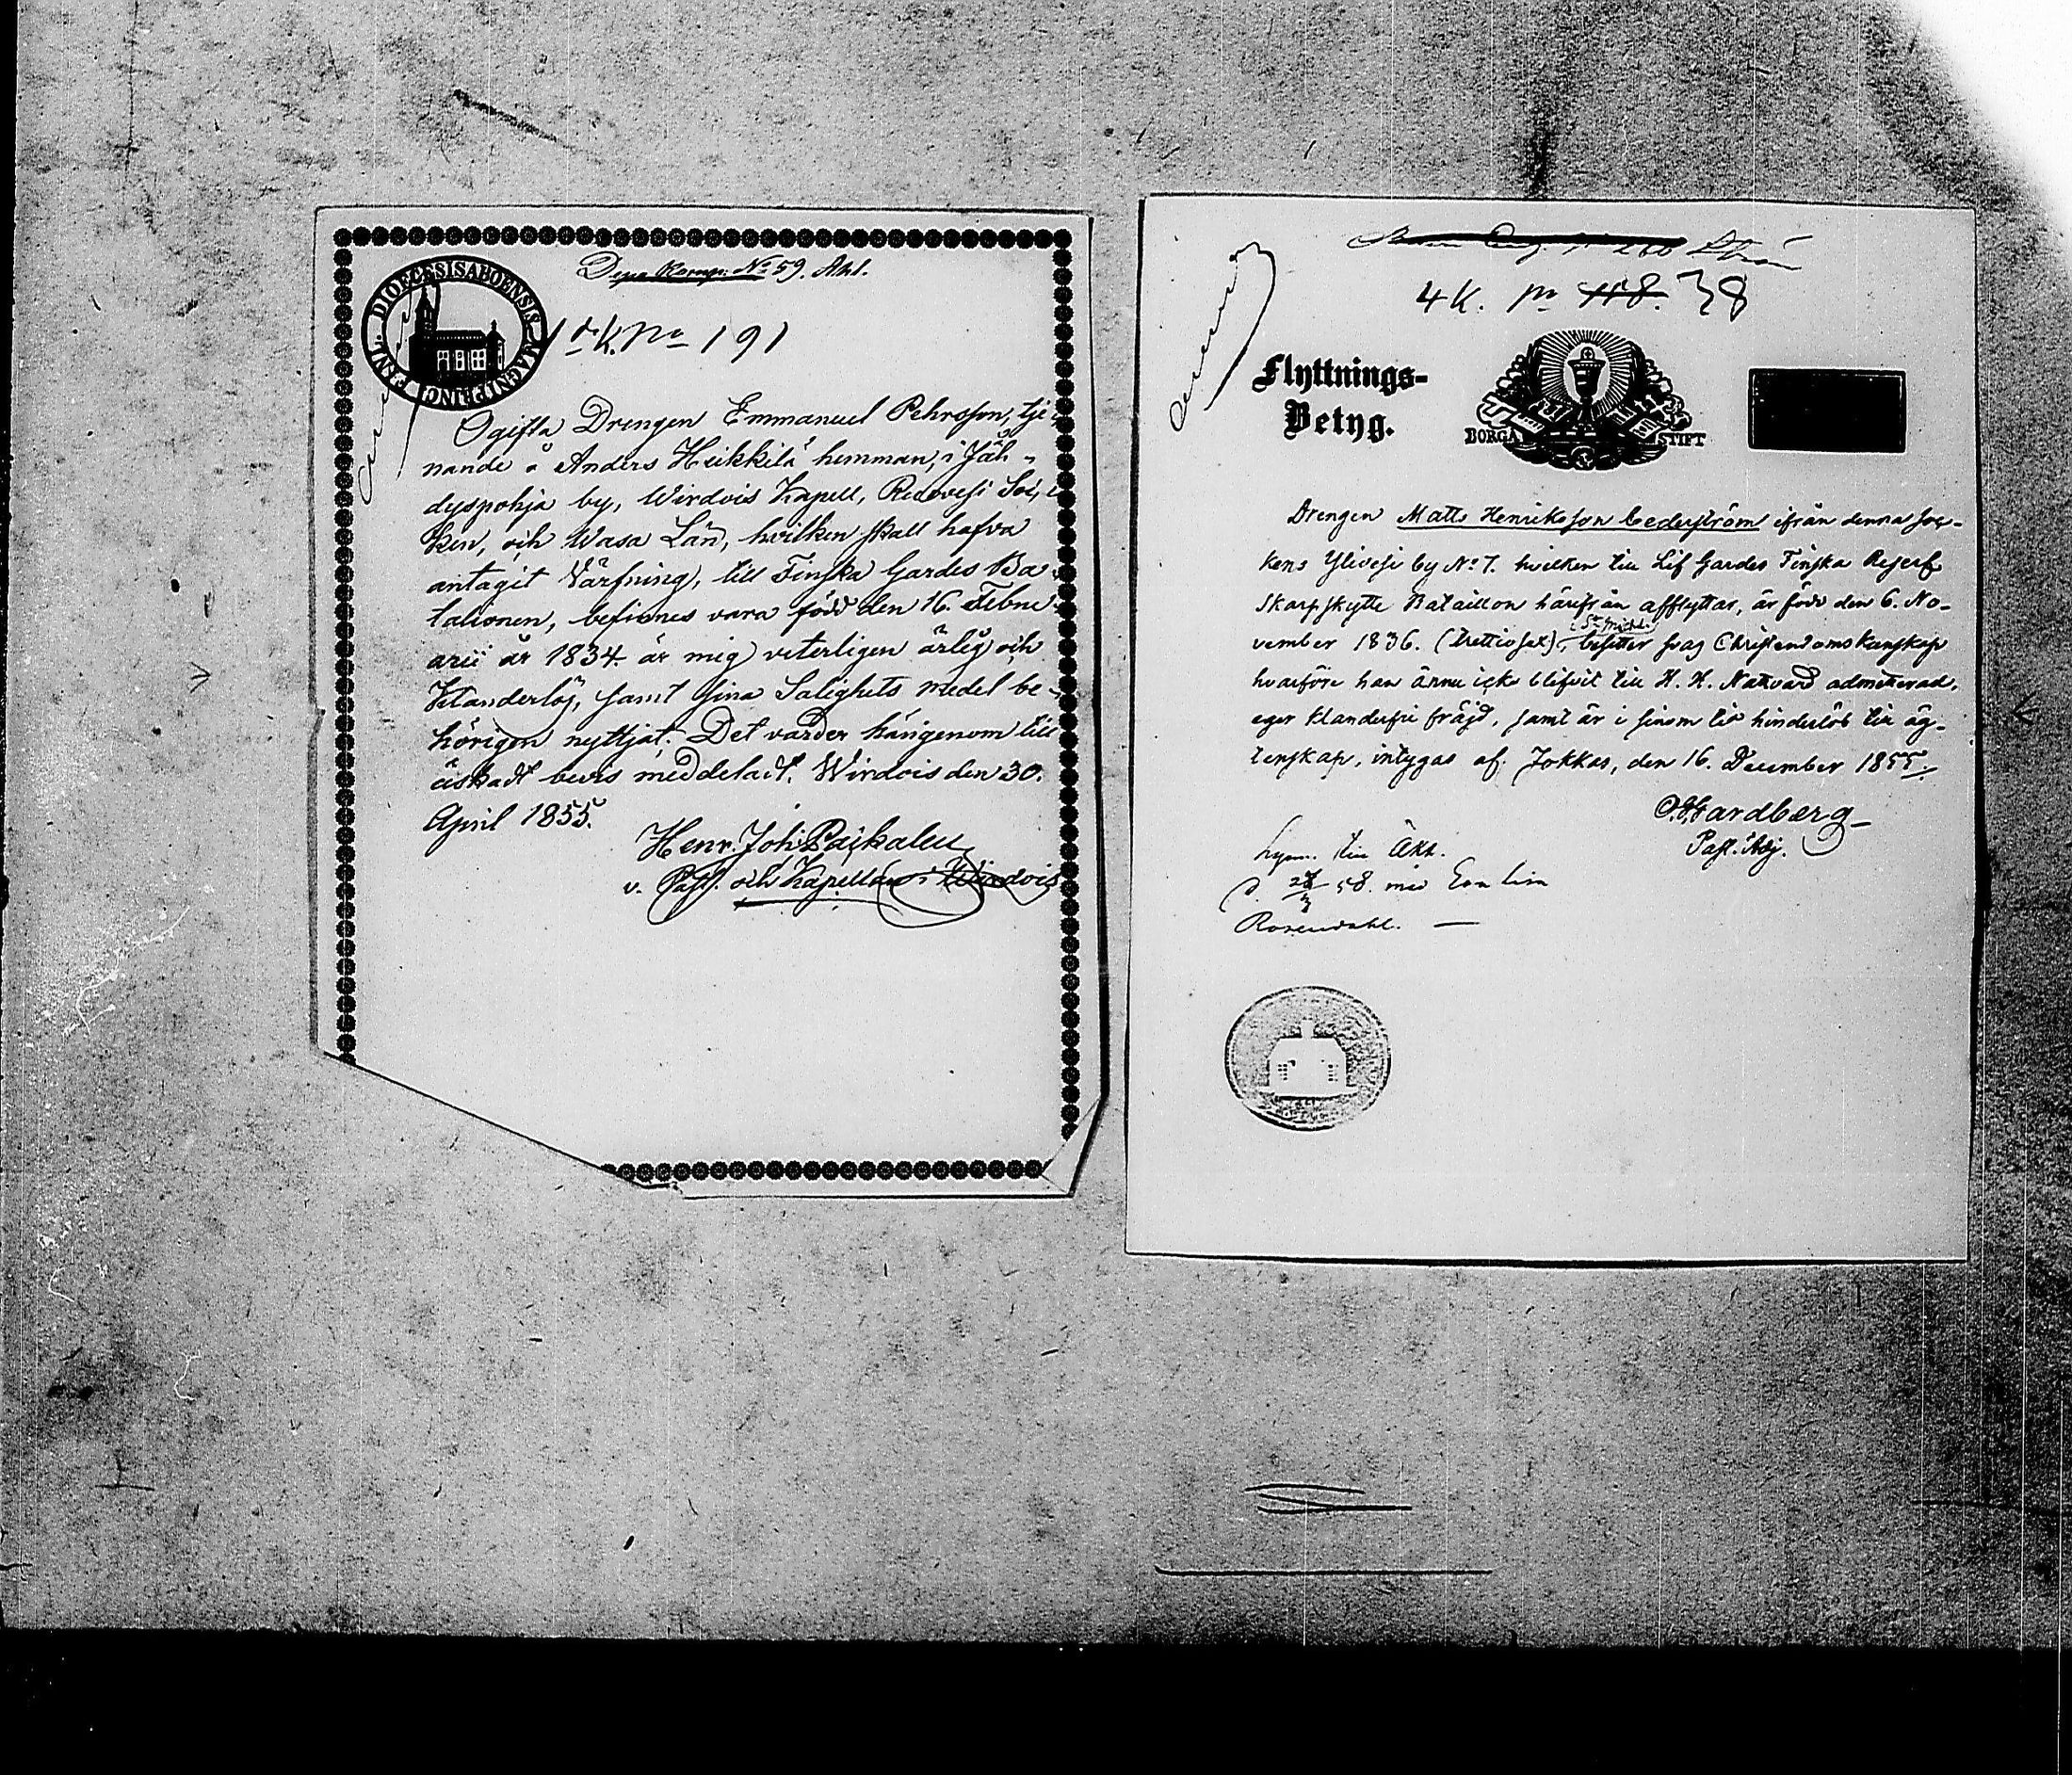 Depa Komp: No 59. Akt.
DIOECESISABOENSIS MAGNI PRINC. FINL.
1a K. No 191
Ogifta Drengen Emmanuel Pehrsson, tje-
nande å Anders Heikkilä hemman, i Jäh-
dyspohja by, Wirdois Kapell, Ruovesi Soc-
ken, och Wasa Län, hvilken skall hafva
antagit Värfning, till Finska Gardes Ba-
talionen, befinnes vara född den 16. Febru-
arii år 1834. är mig veterligen ärlig och
klanderlös, samt sina Salighets medel be-
hörigen nyttjat. Det varder härigenom till
äskadt bevis meddeladt. Wirdois den 30.
April 1855.
Henr. Joh. Pajkalen
v. Past. och Kapellan i Wirdois
4 K. No 118. 38
Flyttnings-
Betyg.
BORGÅ STIFT
Drengen Matts Henriksson Cederström ifrån denna soc-
kens Ylivesi by No 7. hvilken till Lif Gardes Finska Reserf
Skarpskytte Bataillon härifrån afflyttar, är född den 6. No-
i St Michl.
vember 1836. (trettiosex), besitter svag Christendomskunskap
hvarföre han ännu icke blifvit till H. H. Nattvard admitterad,
eger klanderfri fräjd, samt är i sinom tid hinderlös till äg-
tenskap, intygas af. Jokkas, den 16. December 1855.
O. Gardberg
Past. Adj.
Lysn. till Äkt.
58. med Eva Lisa
Rosendahl.